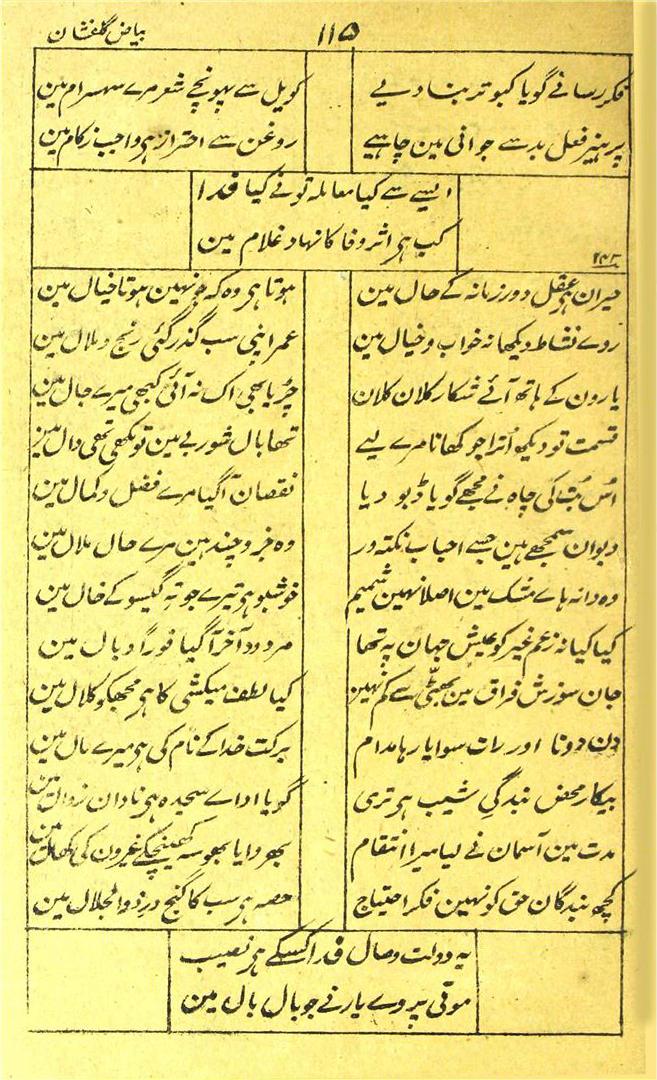 بیاض گلفشان
۱۱۵
فکر رسا نے گویا کبوتر بنا دیے
کویل سے پہونچے شعر مرے سہسرام مین
پرہیز فعل بد سے جوانی مین چاہیے
روغن سے احتراز ہو واجب زکام مین
ایسے سے کیا معاملہ تو نے کیا فدا
کب ہر اثر وفا کا نہاد غلام مین
۱۴۳
حیران ہر عقل دور زمانہ کے حال مین
ہوتا ہر وہ کہ جو نہین ہوتا خیال مین
روے نشاط دیکھا نہ خواب و خیال مین
عمر اپنی سب گذر گئی رنج و ملال مین
یارون کے ہاتھ آئے شکار کلان کلان
چڑیا بھی اک نہ آئی کبھی میرے جال مین
قسمت تو دیکھ اُترا جو کھانا مرے لیے
تھا بال شوربے مین تو مکھی تھی دال مین
اُس بُت کی چاہ نے مجھے گویا ڈبو دیا
نقصان آگیا مرے فضل و کمال مین
دیوان سمجھے ہین جسے احباب نکتہ ور
وہ جزو چند ہین مرے حال ملال مین
وہ دانہ ہاے مشک مین اصلا نہین شمیم
خوشبو ہر تیرے جو تہِ گیسو کے خال مین
کیا کیا نہ زعم غیر کو عیش جہان پہ تھا
مردود آخر آگیا فوراً وبال مین
جان سوزش فراق مین بھٹّی سے کم نہین
کیا لطف میکشی کا ہر مجھکو کلال مین
دن دونا اور رات سوایا رہا مدام
برکت خدا کے نام کی ہر میرے مال مین
بیکار محض بندگیِ شیب ہر تری
گویا اداے سجدہ ہر نادان زوال مین
مدت مین آسمان نے لیا میرا انتقام
بھروایا بھوسہ کھینچکے غیرون کی کھال مین
کچھ بندگان حق کو نہین فکر احتیاج
حصہ ہر سب کا گنج درِ ذوالجلال مین
یہ دولت وصال فدا کسکے ہر نصیب
موتی پروے یار نے جو بال بال مین